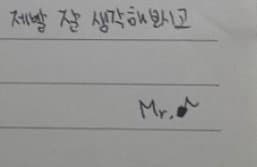 제발 잘 생각해보시고
Mr.♪